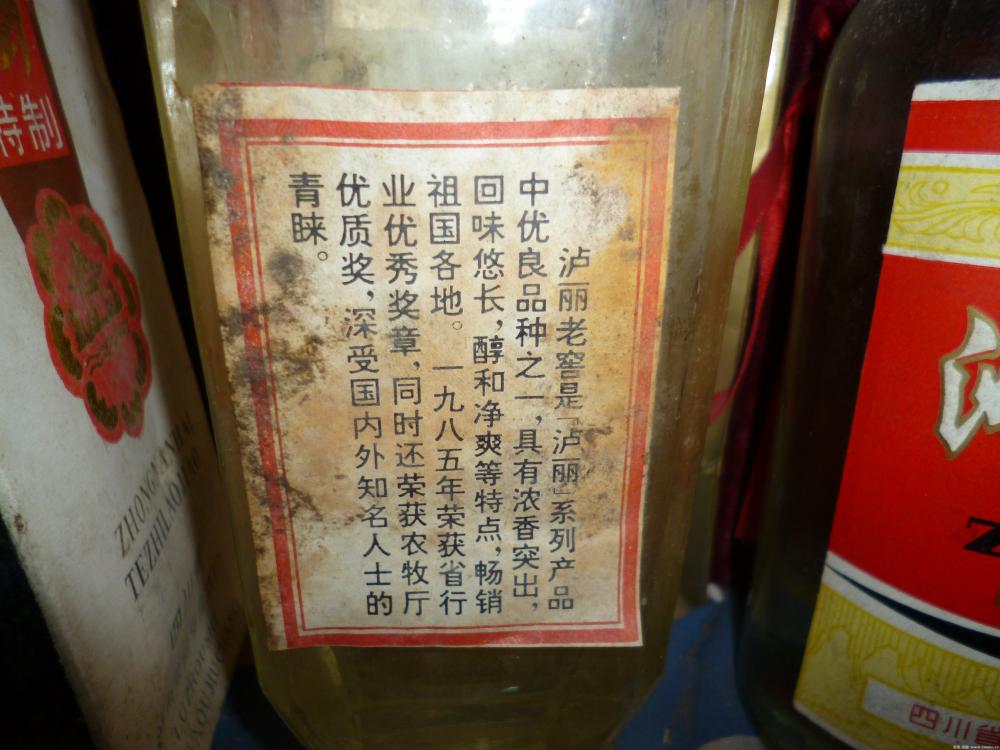 泸丽老窖是「泸丽」系列产品
中优良品种之一，具有浓香突出，
回味悠长，醇和净爽等特点，畅销
祖国各地。一九八五年荣获省行
业优秀奖章，同时还荣获农牧厅
优质奖，深受国内外知名人士的
青睐。
特制
TEZHILAOJIAO
四川省